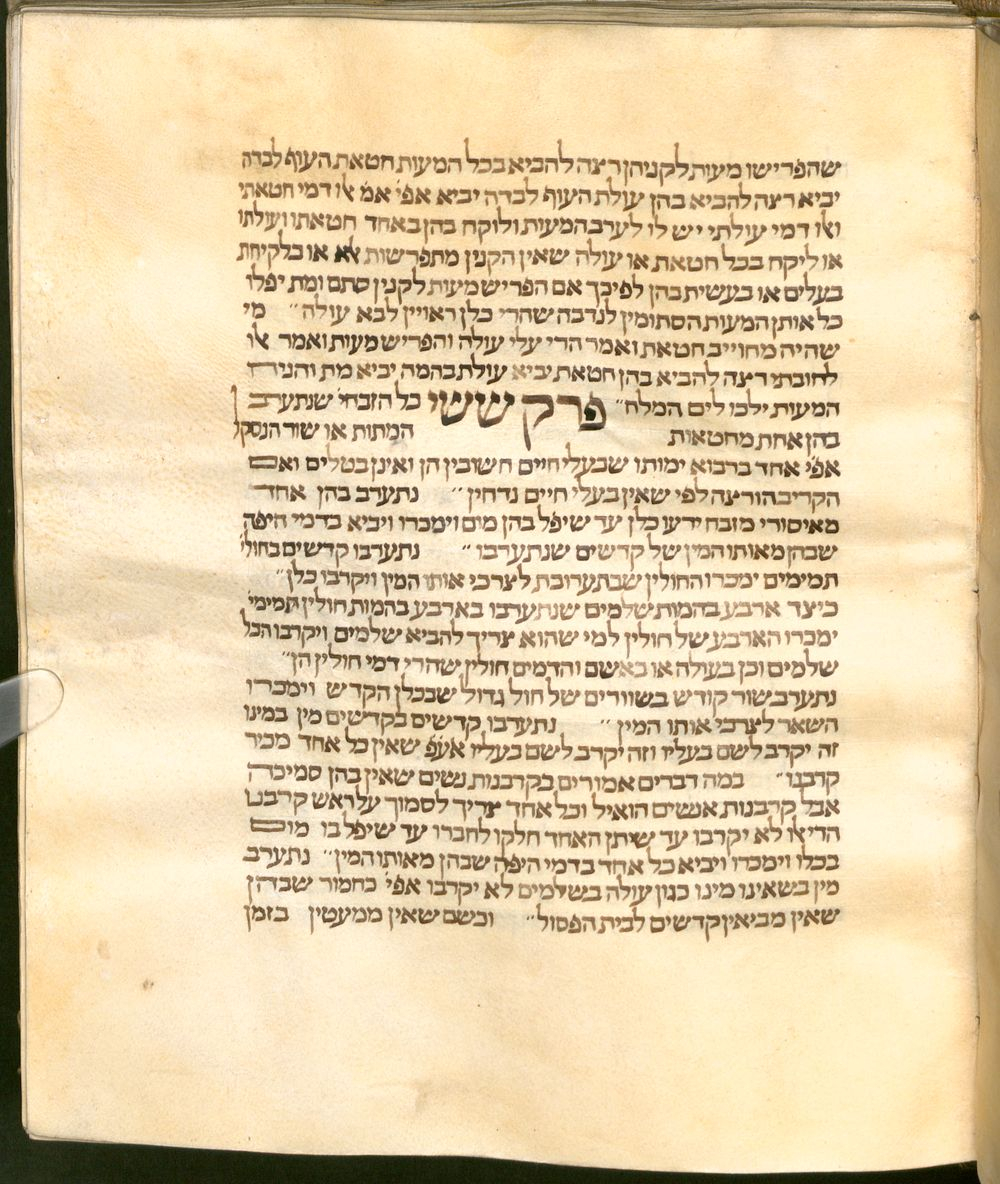 שהפרישו מעות לקניהן רצה להביא בכל המעות חטאת העוף לבדה
יביא רצה להביא בהן עולת העוף לבדה יביא אפי' אמ' אלו דמי חטאתי
ואלו דמי עולתי יש לו לערב המעות ולוקח בהן באחד חטאתו ועולתו
או ליקח בכל חטאת או עולה שאין הקנין מתפרשות אלא או בלקיחת
בעלים או בעשית כהן לפיכך אם הפריש מעות לקנין סתם ומת יפלו
כל אותן המעות הסתומין לנדבה שהרי כלן ראויין לבא עולה״ מי
שהיה מחוייב חטאת ואמר הרי עלי עולה והפריש מעות ואמר אלו
לחובתי רצה להביא בהן חטאת יביא עולת בהמה יביא מת והניח
המעות ילכו לים המלח״ פרק ששי כל הזבחי' שנתערב
בהן אחת מחטאות המתות או שור הנסקל
אפי' אחד ברבוא ימותו שבעלי חיים חשובין הן ואינן בטלים ואם
הקריב הורצה לפי שאין בעלי חיים נדחין״ נתערב בהן אחד
מאיסורי מזבח ידעו כלן עד שיפל בהן מום וימכרו ויביא בדמי היפה
שבהן מאותו המין של קדשים שנתערבו״ נתערבו קדשים בחולי'
תמימים ימכרו החולין שבתערובת לצרכי אותו המין ויקרבו כלן״
כיצד ארבע בהמות שלמים שנתערבו בארבע בהמות חולין תמימי'
ימכרו הארבע של חולין למי שהוא צריך להביא שלמים ויקרבו הכל
שלמים וכן בעולה או באשם והדמים חולין שהרי דמי חולין הן״
נתערב שור קודש בשוורים של חול גדול שבכלן הקדש וימכרו
השאר לצרכי אותו המין״ נתערבו קדשים בקדשים מין במינו
זה יקרב לשם בעליו וזה יקרב לשם בעליו אע״פ שאין כל אחד מכיר
קרבנו״ במה דברים אמורים בקרבנות נשים שאין בהן סמיכה
אבל קרבנות אנשים הואיל וכל אחד צריך לסמוך על ראש קרבנו
הרי אלו לא יקרבו עד שיתן האחד חלקו לחברו עד שיפל בו מום
בכלו וימכרו ויביא כל אחד בדמי היפה שבהן מאותו המין״ נתערב
מין בשאינו מינו כגון עולה בשלמים לא יקרבו אפי' כחמור שבהן
שאין מביאין קדשים לבית הפסול״ וכשם שאין ממעטין בזמן